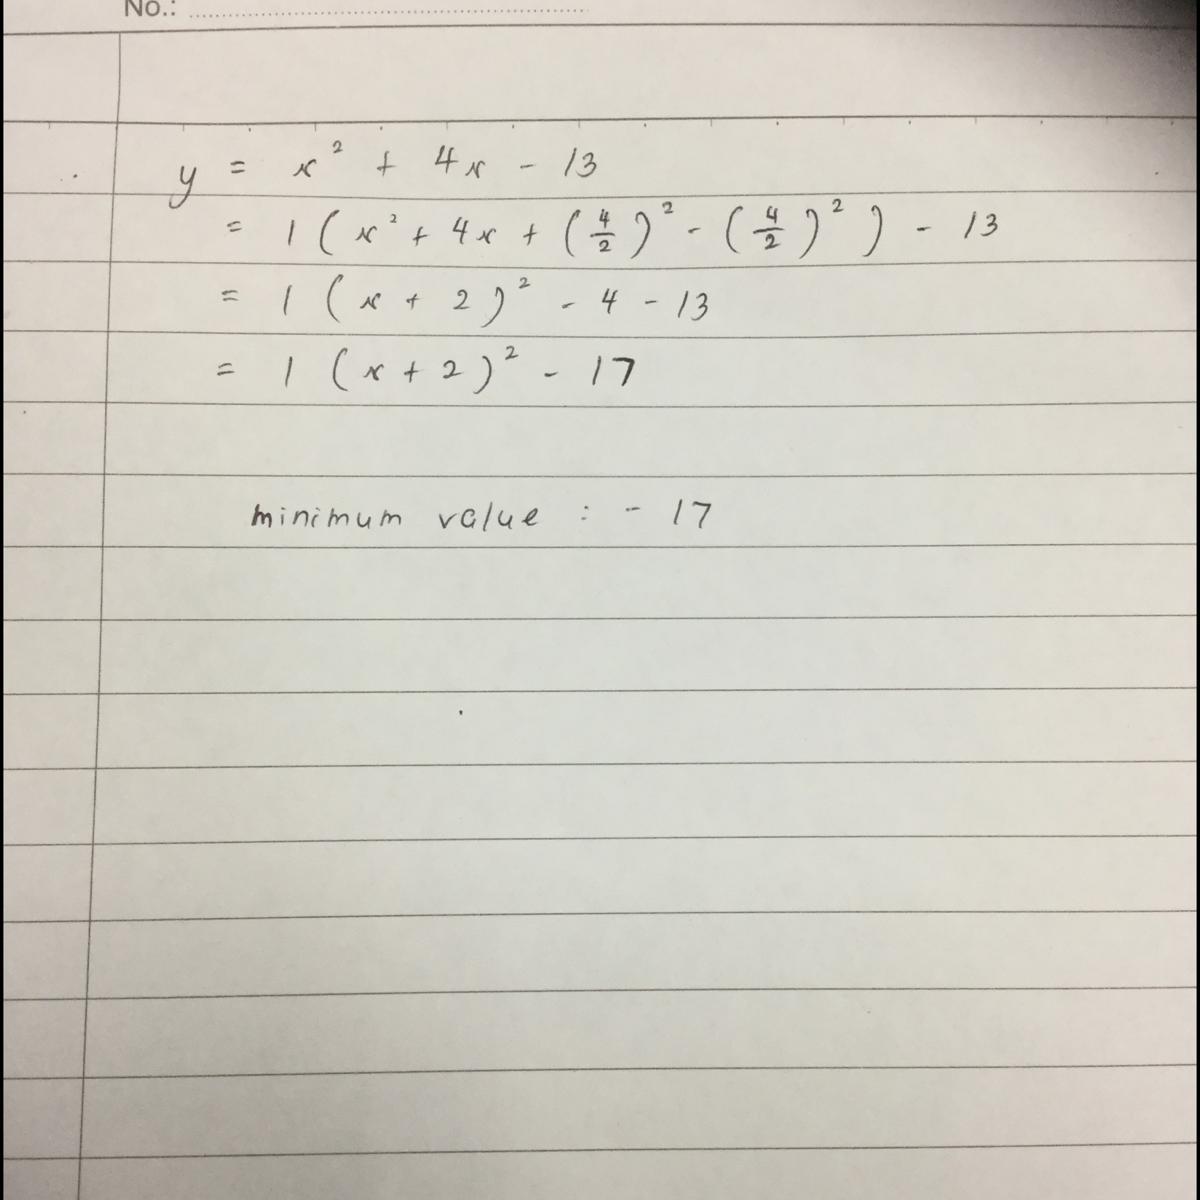 No.:
y = x² + 4x - 13
= 1 ( x² + 4x + (4/2)² - (4/2)² ) - 13
= 1 ( x + 2 )² - 4 - 13
= 1 ( x + 2 )² - 17
minimum value : - 17